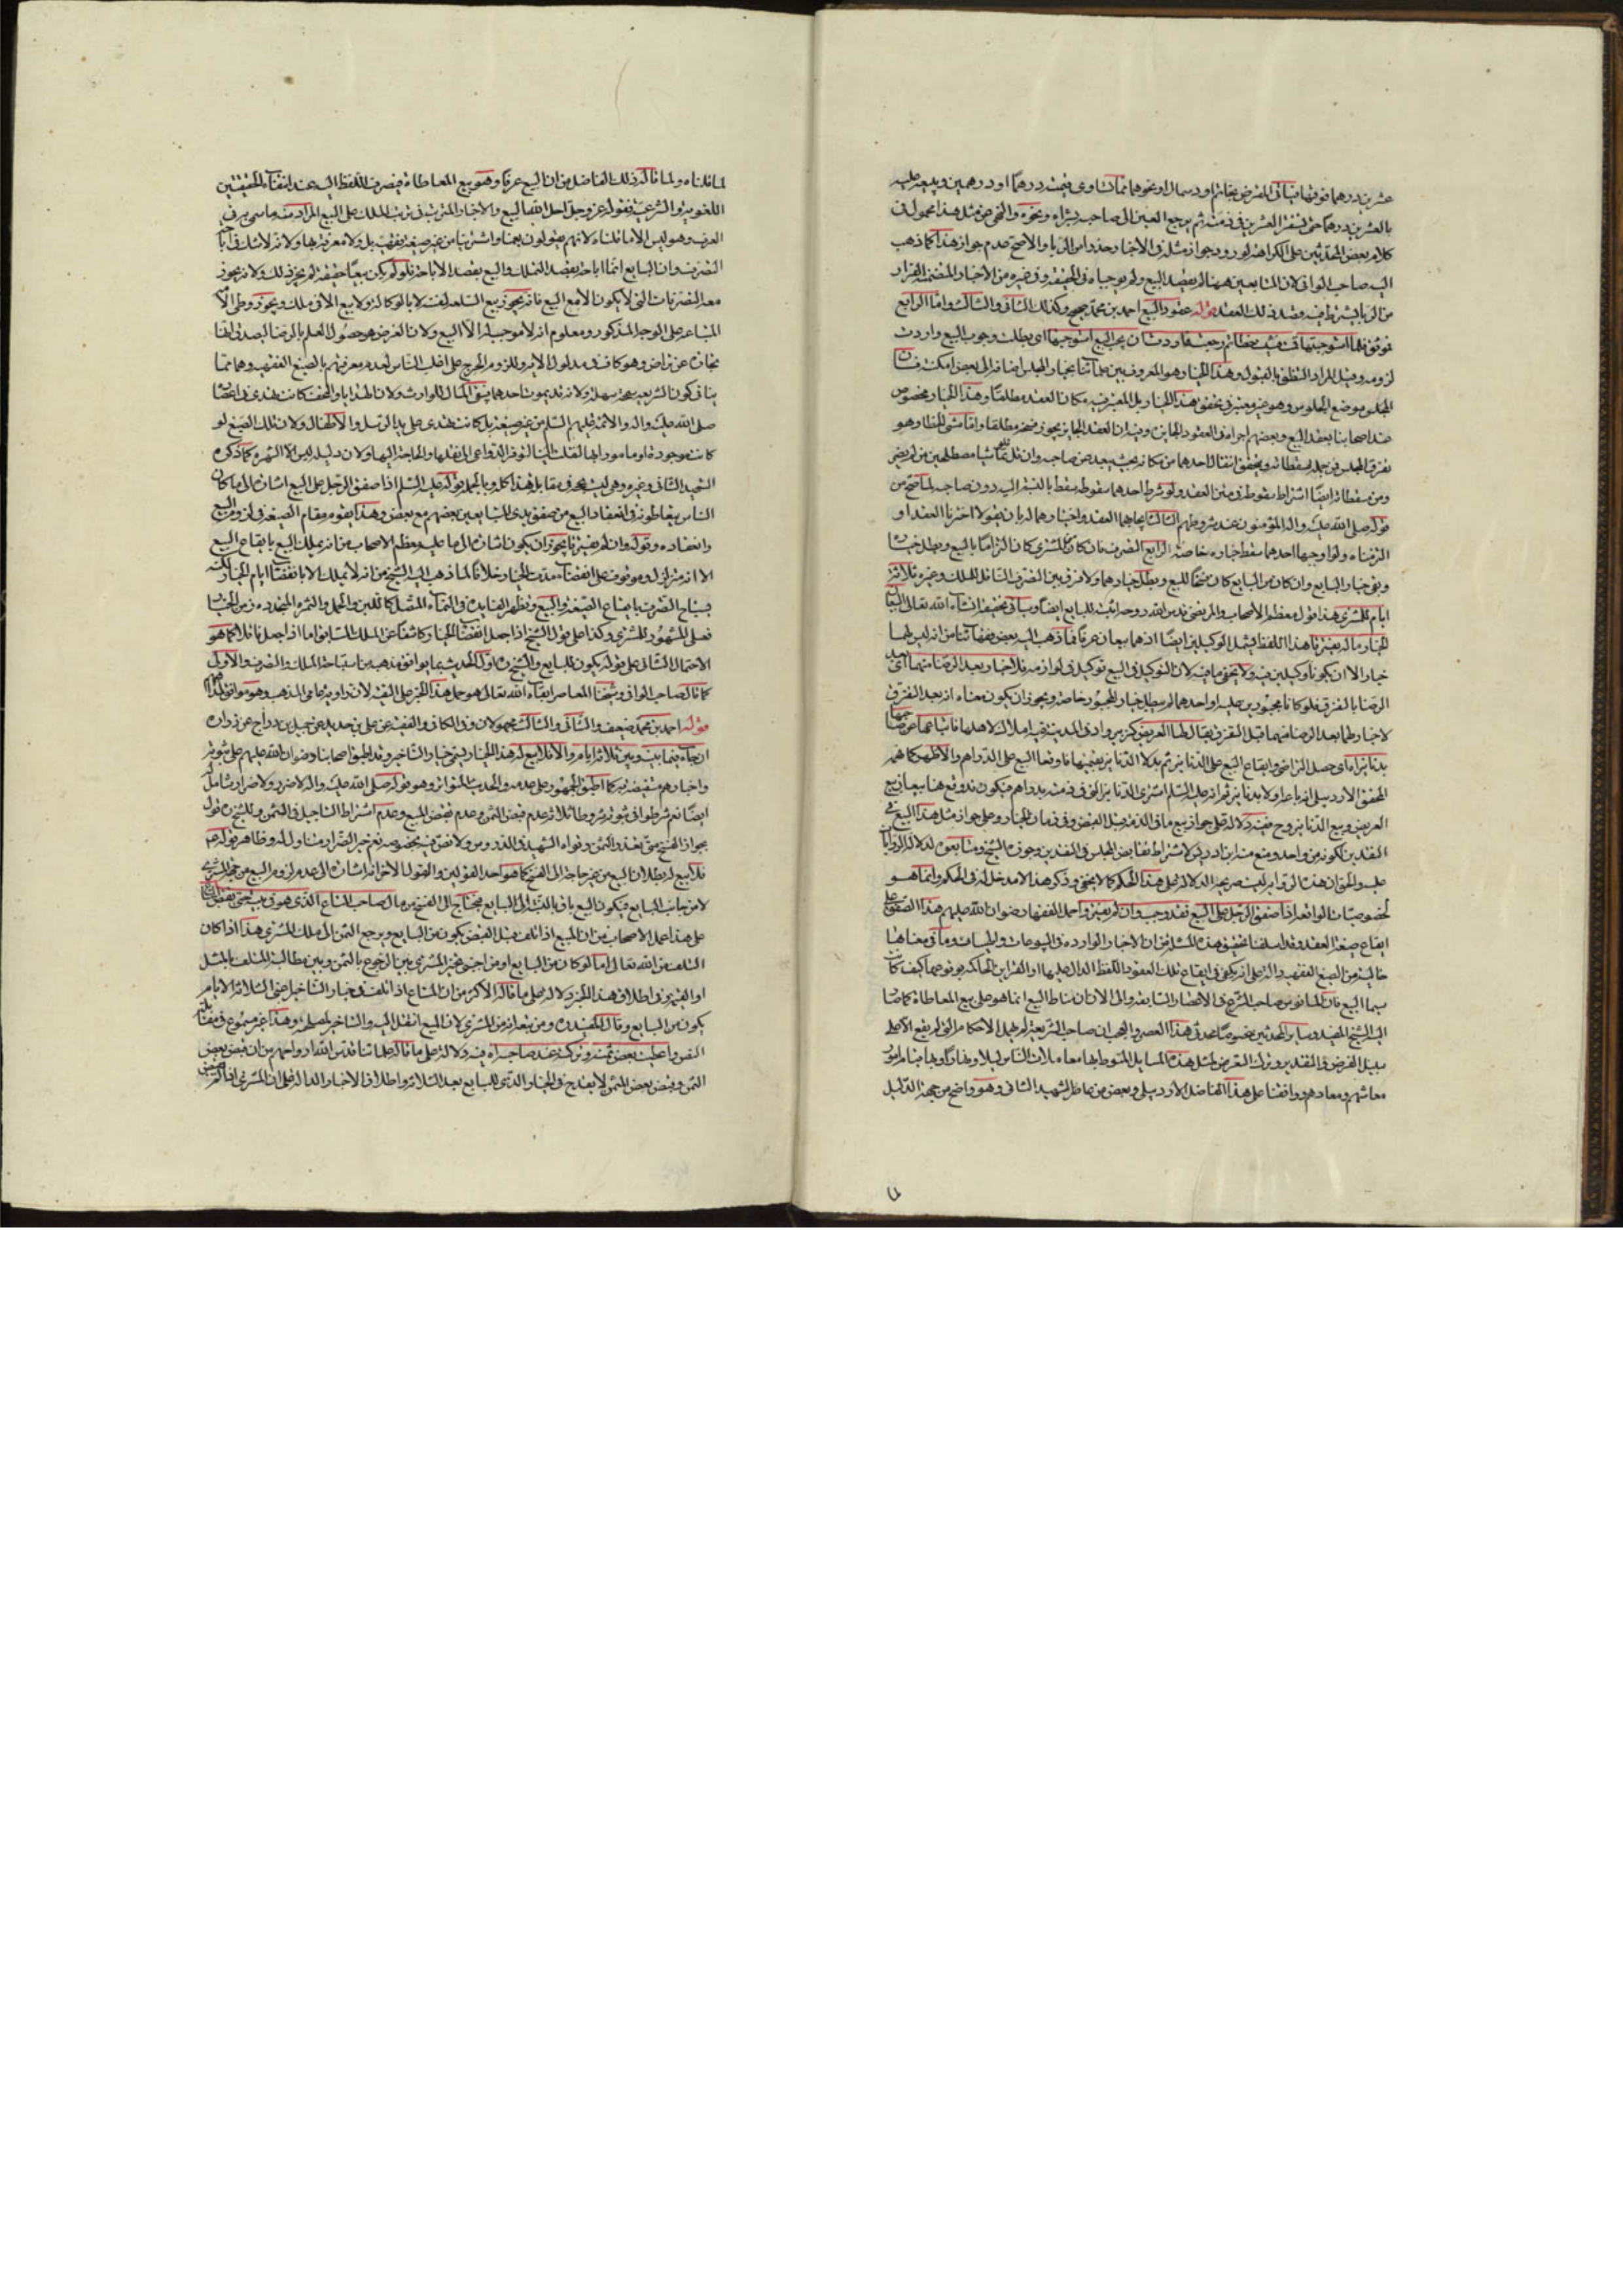 عشرين درهما فوقها فيأتى المقرض بخاتم او دسمال او نحوهما مما تساوى قيمته درهما او درهمين ويبيعه عليه
بالعشرين درهما حتى تستقر العشرين فى ذمته ثم يرجع العين الى صاحبه بشراء ونحوه والنهى عن مثل هذا محمول فى
كلام بعض المحدثين على الكراهة لورود جواز مثله فى الاخبار حذرا من الربا والاصح عدم جواز هذا كما ذهب
اليه صاحب الوافى لان المتبايعين ههنا لم يقصد البيع ولم يوجباه فى الحقيقة وفى غيره من الاخبار المتضمنة للفرار
من الربا يشترط فيه قصد ذلك العقد قوله عقود البيع احمد بن محمد صحيح وكذلك الثانى والثالث واما الرابع
فموثق فلما استوجبتها قمت فمشيت خطا ثم رجعت فاردت ان يجب البيع استوجبتها اى بطلت وجوب البيع واردت
لزومه وقيل المراد النطق بالقبول وهذا الخيار هو المعروف بين علمائنا بخيار المجلس اضافة الى بعض امكنته فان
المجلس موضع الجلوس وهو غير معتبر فى تحقق هذا الخيار بل المعتبر فيه مكان العقد مطلقا وهذا الخيار مخصوص
عند اصحابنا بعقد البيع وبعضهم اجراه فى العقود الجايزة وفيه ان العقد الجايز يجوز فسخه مطلقا وانما مشى الخطا وهو
تفرق المجلس من جملة مسقطاته ويتحقق انتقال احدهما من مكانه بحيث يبعد عن صاحبه وان قل فلو تماشيا مصطحبين من لم يضر
ومن مسقطاته ايضا اشتراط سقوطه فى متن العقد ولو شرط احدهما سقوطه سقط بالنسبة اليه دون صاحبه لما صح من
قوله صلى الله عليه واله المؤمنون عند شروطهم الثالث ايجابهما العقد واختيارهما له بان يقولا اخترنا العقد او
الزمناه ولو اوجبها احدهما سقط خياره خاصة الرابع التصرف فان كان من المشترى كان التزاما بالبيع وبطل خياره
وبقى خيار البايع وان كان من البايع كان فسخا للبيع وبطل خيارهما ولا فرق بين التصرف الناقل للملك وغيره ثلاثة
ايام للمشترى هذا قول معظم الاصحاب والمرتضى قدس الله روحه اثبته للبايع ايضا وسيأتى تحقيقه ان شاء الله تعالى البيعان
بالخيار ما لم يفترقا هذا اللفظ يشمل الوكيلين ايضا اذ هما بيعان عرفا فما ذهب اليه بعض فقهائنا من انه ليس لهما
خيار الا ان يكونا وكيلين فيه ولا يخفى ما فيه لان التوكيل فى البيع توكيل فى لوازمه فلا خيار بعد الرضا منهما اى بعد
الرضا بالتفرق فلو كانا مجبورين عليه او احدهما لم يسقط خيار المجبور خاصة ويجوز ان يكون معناه انه بعد التفرق
لا خيار لهما بعد الرضا منهما قبل التفرق يقال لها العريض كزبير وادى المدينة به املاك لاهلها فابتاعها عوضا
بدنانير اى حصل التراضى وايقاع البيع على الدنانير ثم بدلا الدنانير بقيمتها فاوقعا البيع على الدراهم والاظهر كما فهمه
المحقق الاردبيلى انه باعه اولا بدنانير ثم انه عليه السلم اشترى الدنانير التى فى ذمته بدراهم فيكون قد وقع هنا بيعان بيع
العريض وبيع الدنانير وح ففيه دلالة على جواز بيع ما فى الذمة قبل القبض وفى زمان الخيار وعلى جواز مثل هذا البيع فى
النقدين لكونه من واحد ومنع منه ابن ادريس لاشتراط تقابض المجلس فى النقدين وجوزه الشيخ ومتابعوه لدلالة الروايات
عليه والحق ان هذه الرواية ليست صريحة الدلالة على هذا الحكم كما لا يخفى وذكر هذا لا مدخل له فى الحكم وانما هو
لخصوصيات الواقعة اذا صفق الرجل على البيع فقد وجب وان لم يفترقا حمل الفقهاء رضوان الله عليهم هذا الصفق على
ايقاع صيغة العقد وقد اسلفنا تحقيق هذه المسئلة من ان الاخبار الواردة فى البيوعات والهبات وما فى معناها
خالية من الصيغ الفقهية دالة على انه يكفى فى ايقاع تلك العقود اللفظ الدال عليها او القراين الحاكمة بوقوعها كيف كان
سيما البيع فان المأنوس من صاحب الشرع فى الاعصار السابقة والى الان ان مناط البيع انما هو على بيع المعاطاة كما صار
اليه الشيخ المفيد وساير المحدثين خصوصا محدثى هذا العصر والعجب ان صاحب الشريعة لم يهمل الاحكام التى لم يقع الا على
سبيل الفرض والتقدير وترك التعرض لمثل هذه المسايل المنوط بها معاملات الناس ليلا ونهارا وبها نيط امور
معاشهم ومعادهم ووافقنا على هذا الفاضل الاردبيلى وبعض من عاصر الشهيد الثانى وهو واضح من جهة الدليل
لما قلناه ولما قاله ذلك الفاضل من ان البيع عرفا وهو بيع المعاطاة فيصرف اللفظ اليه عند انتفاء الحقيقتين
اللغوية والشرعية فقوله عز وجل احل الله البيع والاخبار المترتب فى ترتب الملك على البيع المراد منه ما سمى به فى
العرف وهو ليس الا ما قلناه لانهم يقولون بعنا واشترينا من غير صيغة فقهية بل ولا معرفة بها ولانه لا شك فى اباحة
التصرف وان البايع انما اباحه بقصد التملك والبيع بقصد الاباحة فلو لم يكن بيعا حقيقة لم يجز ذلك ولانه يجوز
معه التصرفات التى لا يكون الا مع البيع فانه يجوز بيع السلعة لنفسه لا بالوكالة ولا بيع الا فى ملك ويجوز وطى الامة
المبتاعة على الوجه المذكور ومعلوم انه لا موجب له الا البيع ولان الغرض هو حصول العلم بالرضا ليصدق انها
تجارة عن تراض وهو كاف فى مدلول الاية وللزوم الحرج على اغلب الناس لعدم معرفتهم بالصيغ الفقهية وهما مما
ينافى كون الشريعة سمحة سهلة ولانه قد يموت احدهما فيبقى المال للوارث ولان الهدايا والتحف كانت تهدى فى اعصار
صلى الله عليه واله والائمة عليهم السلم من غير صيغة بل كانت تهدى على يد الرسل والاطفال ولان تلك الصيغ لو
كانت موجودة او مامورا بها لنقلت الينا لتوفر الدواعى الى نقلها والحاجة اليها ولان دليله ليس الا الشهرة كما ذكره
الشهيد الثانى وغيره وهى ليست بحجة فى مقابل هذا كله وبالجملة قوله عليه السلم اذا صفق الرجل على البيع اشارة الى ما كان
الناس يتعاطونه فى انعقاد البيع من صفق يدى المتبايعين بعضهم مع بعض وهذا يقوم مقام الصيغة فى لزوم البيع
وانعقاده وقوله وان لم يفترقا يجوز ان يكون اشارة الى ما عليه معظم الاصحاب من انه يملك المبيع بايقاع البيع
الا انه متزلزل وموقوف على انقضاء مدة الخيار خلافا لما ذهب اليه الشيخ من انه لا يملك الا بانقضاء ايام الخيار لكنه
يباح التصرف بايقاع الصيغة والبيع وتظهر الفايدة فى النماء المتصل كاللبن والحمل والثمرة المتجددة زمن الخيار
فعلى المشهور للمشترى وكذا على قول الشيخ اذا جعل انقضاء الخيار كاشفا عن الملك السابق واما اذا جعل ناقلا كما هو
الاحتمال الثانى على قوله يكون للبايع والشيخ ره اول الحديث بما يوافق مذهبه من استباحة الملك والتصرف والاولى
كما قاله صاحب الوافى وشيخنا المعاصر ابقاه الله تعالى هو حمل هذا الخبر على التقية لان راويه عامى المذهب وهو موافق لهم
قوله احمد بن محمد ضعيف والثانى والثالث مجهولان وفى الكافى والفقيه عن على بن حديد عن جميل بن دراج عن زرارة
ان جاء فيما بينه وبين ثلاثة ايام والا فلا بيع له هذا الخيار يسمى خيار التاخير وقد اطبق اصحابنا رضوان الله عليهم على ثبوته
واخبارهم مستفيضة به كما اطبق الجمهور على عدمه والحديث المتواتر وهو قوله صلى الله عليه واله لا ضرر ولا ضرار شامل له
ايضا نعم شرطوا فى ثبوته شروطا ثلاثة عدم قبض الثمن وعدم قبض المبيع وعدم اشتراط التاجيل فى الثمن وللشيخ ره قول
بجواز الفسخ متى تعذر الثمن وقواه الشهيد فى الدروس ولا نص فيه بخصوصه نعم خبر الضرار متناول له وظاهر قوله عم
فلا بيع له بطلان البيع من غير حاجة الى الفسخ كما هو احد القولين والقول الاخر انه اشارة الى عدم لزوم البيع من جهة المشترى
لا من جانب البايع فيكون البيع باق بالنسبة الى البايع فيحتاج الى الفسخ من مال صاحب المتاع الذى هو فى بيته حتى يقبض المتاع
على هذا عمل الاصحاب من ان المبيع اذا تلف قبل القبض يكون من البايع ويرجع الثمن الى ملك المشترى هذا اذا كان
التلف من الله تعالى اما لو كان من البايع او من اجنبى تخير المشترى بين الرجوع بالثمن وبين مطالبة المتلف بالمثل
او القيمة وفى اطلاق هذا الخبر دلالة على ما قاله الاكثر من ان المتاع اذا تلف فى خيار التاخير حتى الثلاثة الايام
يكون من البايع وقال المفيد ره ومن تبعه انه من المشترى لان المبيع انتقل اليه والتاخير لمصلحته وهذا غير مسموع فى مقابلة
النص واعطيت بعض ثمنه وتركته عند صاحبه اه فيه دلالة على ما قاله علمائنا قدس الله ارواحهم من ان قبض بعض
الثمن وقبض بعض المثمن لا يقدح فى الخيار الذى للبايع بعد الثلاثة واطلاق الاخبار دالة على ان المشترى اذا لم يقبض